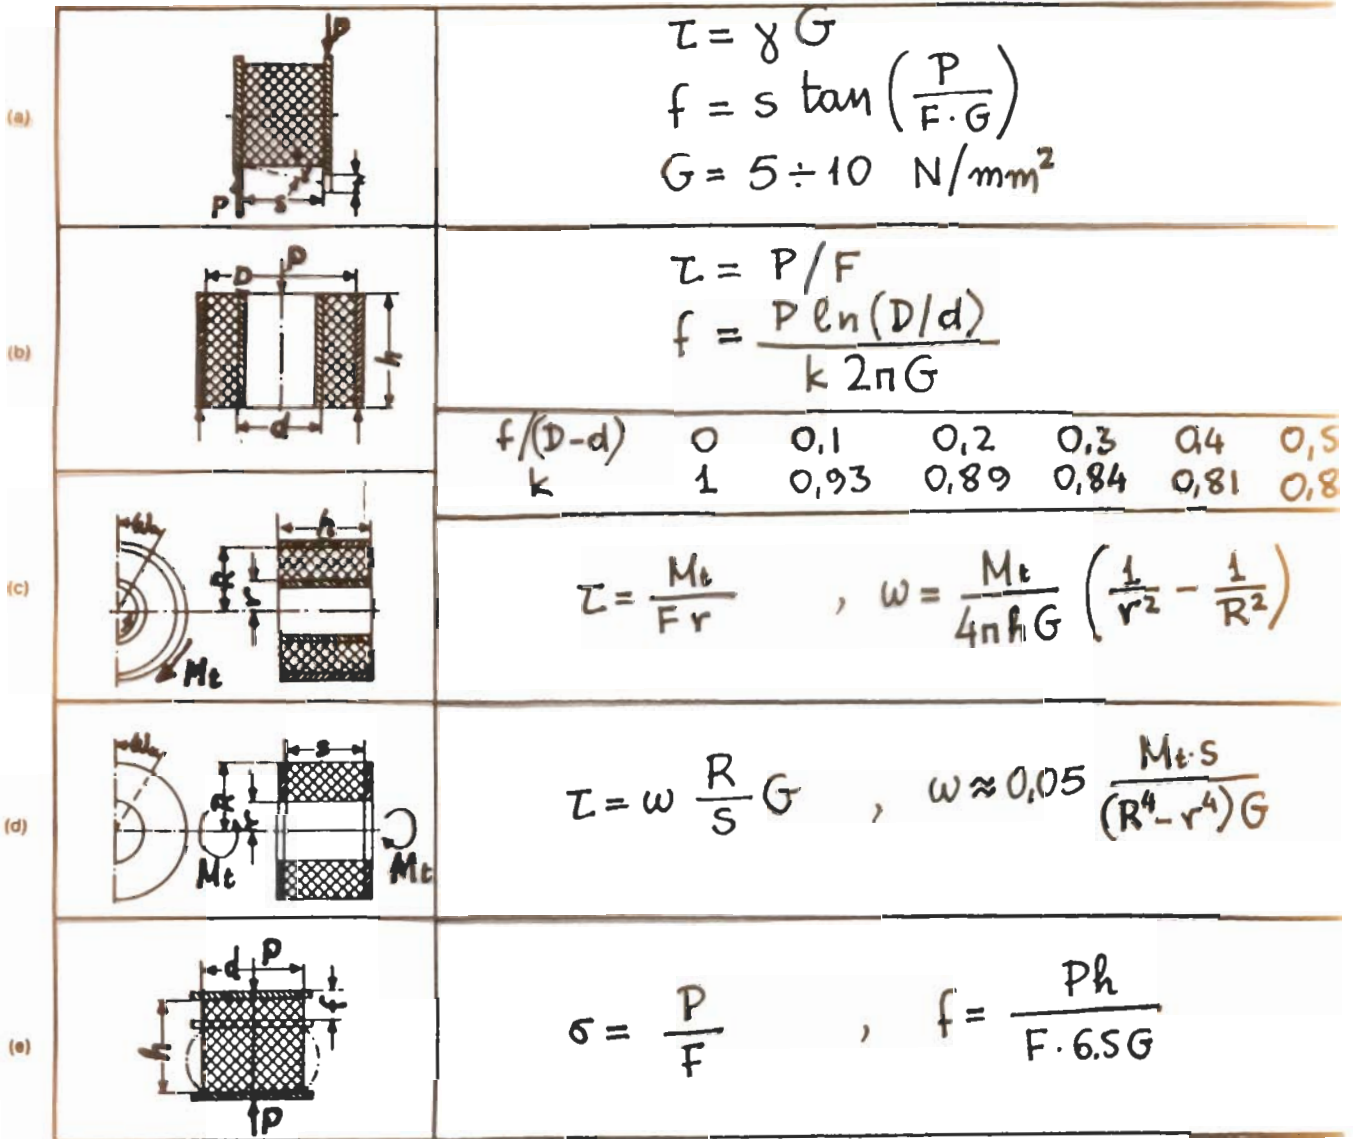 (a)
P
P
s
τ = γ G
f = s tan (P / F · G)
G = 5 ÷ 10 N/mm²
(b)
P
D
h
d
τ = P/F
f = P ln (D/d) / k 2π G
f/(D-d) 0 0,1 0,2 0,3 0,4 0,5
k 1 0,93 0,89 0,84 0,81 0,8
(c)
h
R
r
Mt
τ = Mt / F r , ω = Mt / 4π h G (1/r² - 1/R²)
(d)
s
R
r
Mt
Mt
τ = ω R/s G , ω ≈ 0,05 Mt·s / (R⁴ - r⁴) G
(e)
P
d
f
h
P
σ = P/F , f = Ph / F · 6.5 G